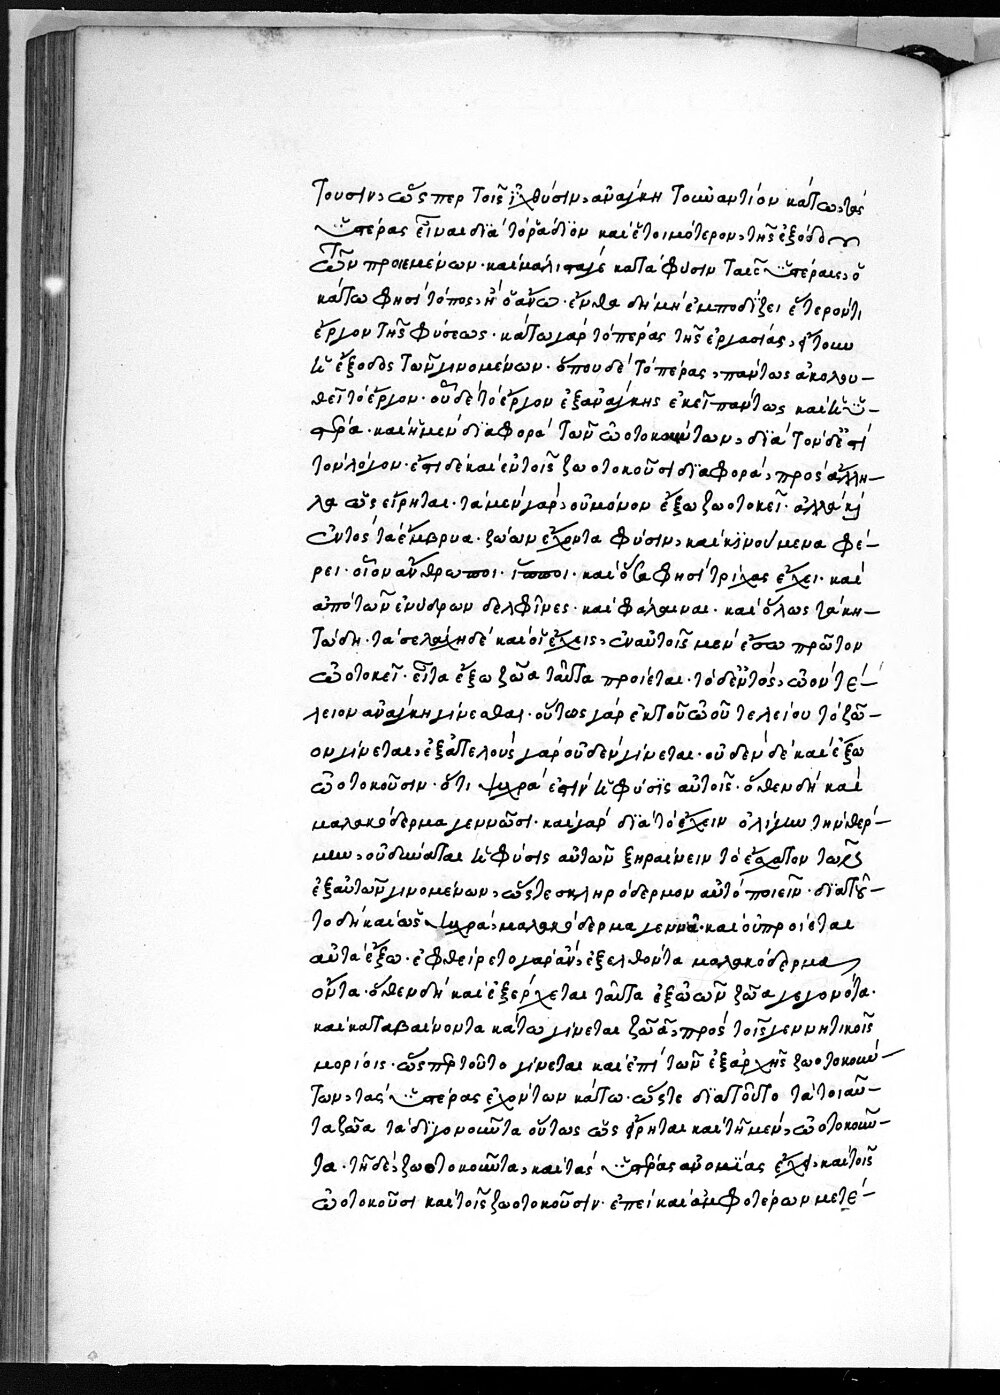 τουσιν, ὥς περ τοῖς ἰχθύσιν, ἀνάγκη τοὐναντίον κάτω, τὰς
ὑστέρας εἶναι διὰ τὸ ῥᾴδιον καὶ ἑτοιμότερον, τῆς ἐξόδου
τῶν προιεμένων· καὶ μάλιστά γε κατὰ φύσιν ταῖς ὑστέραις, ὁ
κάτω φησὶ τόπος, ἢ ὁ ἄνω· ἔνθα δὴ μὴ ἐμποδίζει ἕτερόν τι
ἔργον τῆς φύσεως· κάτω γὰρ τὸ πέρας τῆς ἐργασίας,
ἡ ἔξοδος τῶν γινομένων· ὅπου δὲ τὸ πέρας, πάντως ἀκολου-
θεῖ τὸ ἔργον· οὗ δὲ τὸ ἔργον ἐξανάγκης ἐκεῖ πάντως καὶ ἡ ὑ-
στέρα· καὶ ἡ μὲν διαφορὰ τῶν ὠοτοκούντων, διὰ τόνδε ἐστὶ
τὸν λόγον· ἔστι δὲ καὶ ἐν τοῖς ζωοτοκοῦσι διαφορὰ, πρὸς ἄλλη-
λα ὡς εἴρηται· τὰ μὲν γὰρ, οὐ μόνον ἔξω ζωοτοκεῖ· ἀλλὰ καὶ
ἐντὸς τὰ ἔμβρυα· ζώων ἔχοντα φύσιν, καὶ κινούμενα φέ-
ρει· οἷον ἄνθρωποι· ἵπποι· καὶ ὅσα φησὶ τρίχας ἔχει· καὶ
ἀπὸ τῶν ἐνύδρων δελφῖνες· καὶ φάλαιναι· καὶ ὅλως τὰ κη-
τώδη· τὰ σελάχη δὲ καὶ οἱ ἔχεις, ἐν αὐτοῖς μὲν ἔσω πρῶτον
ὠοτοκεῖ· εἶτα ἔξω ζῶα ταῦτα προίεται· τὸ δ' ἐντὸς, ὠὸν τέ-
λειον ἀνάγκη γίνεσθαι· οὕτως γὰρ ἐκ τοῦ ὠοῦ τελείου τὸ ζῶ-
ον γίνεται, ἐξ ἀτελοῦς γὰρ οὐδὲν γίνεται· οὐδὲν δὲ καὶ ἔξω
ὠοτοκοῦσιν· ὅτι ψυχρά ἐστιν ἡ φύσις αὐτοῖς· ὅθεν δὴ καὶ
μαλακόδερμα γεννῶσι· καὶ γὰρ διὰ τὸ ἔχειν ὀλίγην τὴν θέρ-
μην, οὐ δύναται ἡ φύσις αὐτῶν ξηραίνειν τὸ ἔσχατον
ἐξ αὐτῶν γινομένων, ὥς τε σκληρόδερμον αὐτὸ ποιεῖν· διὰ τοῦ-
το δὴ καὶ ὡς ψυχρὰ, μαλακόδερμα γεννᾶ· καὶ οὐ προίεται
αὐτὰ ἔξω· ἐφθείρετο γὰρ ἂν, ἐξελθόντα μαλακόδερμα
ὄντα· ὅθεν δὴ καὶ ἐξέρχεται ταῦτα ἐξ ὠῶν ζῶα γεγονότα·
καὶ καταβαίνοντα κάτω γίνεται ζῶα, πρὸς τοῖς γεννητικοῖς
μορίοις· ὥσπερ τοῦτο γίνεται καὶ ἐπὶ τῶν ἐξ ἀρχῆς ζωοτοκούν-
των, τὰς ὑστέρας ἐχόντων κάτω· ὥς τε διὰ τοῦτο τὰ τοιαῦ-
τα ζῶα τὰ διγονοῦντα οὕτως ὡς εἴρηται καὶ τῆ μὲν, ὠοτοκοῦν-
τα· τῆ δὲ, ζωοτοκοῦντα, καὶ τὰς ὑστέρας ἀνομοίας ἔχει, καὶ τοῖς
ὠοτοκοῦσι καὶ τοῖς ζωοτοκοῦσιν· ἐπεὶ καὶ ἀμφοτέρων μετέ-